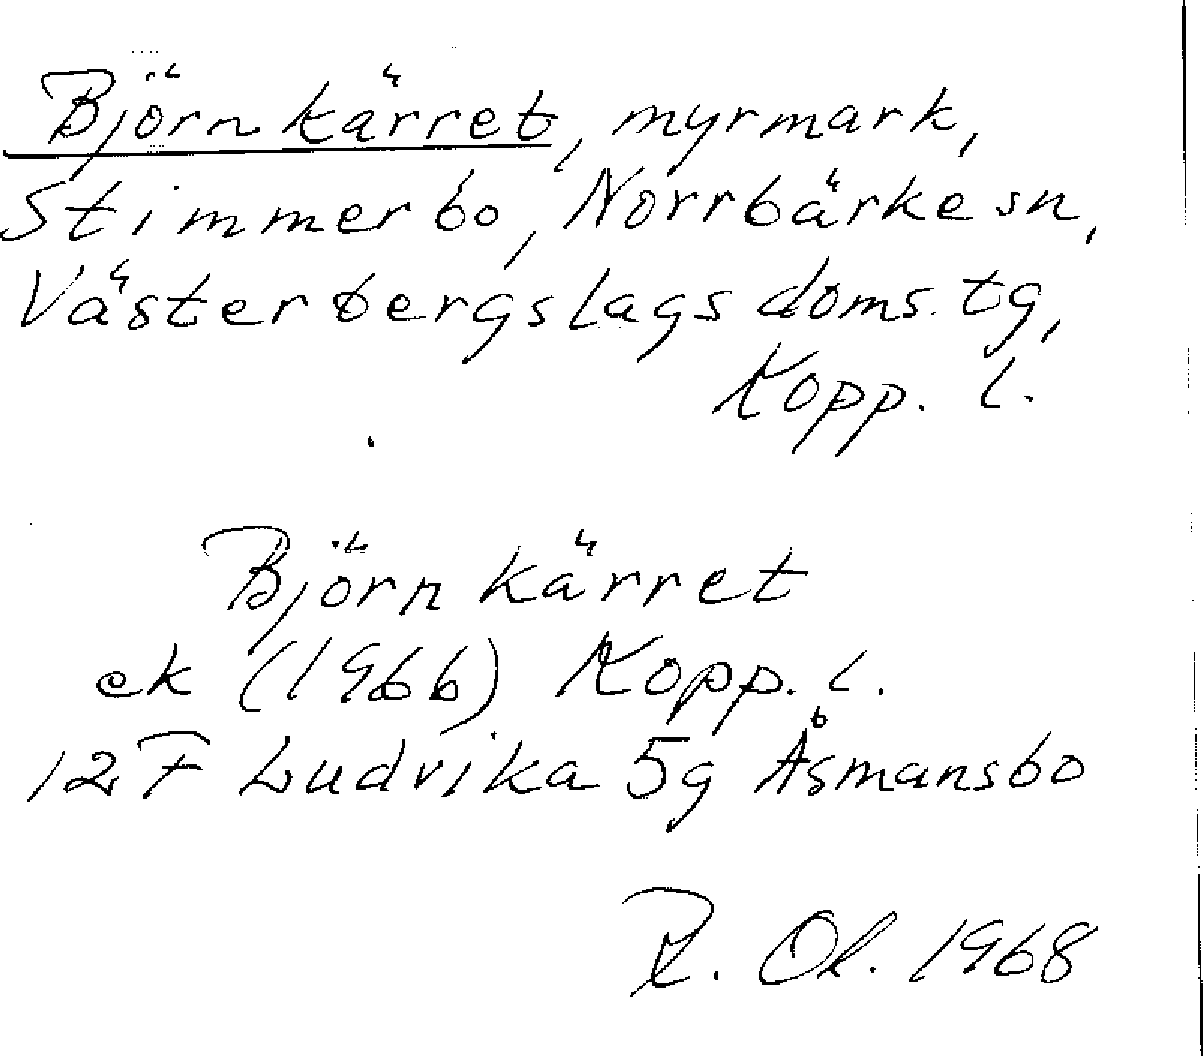 Björnkärret, myrmark,
Stimmerbo, Norrbärke sn,
Västerbergslags doms. tg,
Kopp. l.
Björnkärret
ek (1966) Kopp. l.
12F Ludvika 5g Åsmansbo
R. Ol. 1968